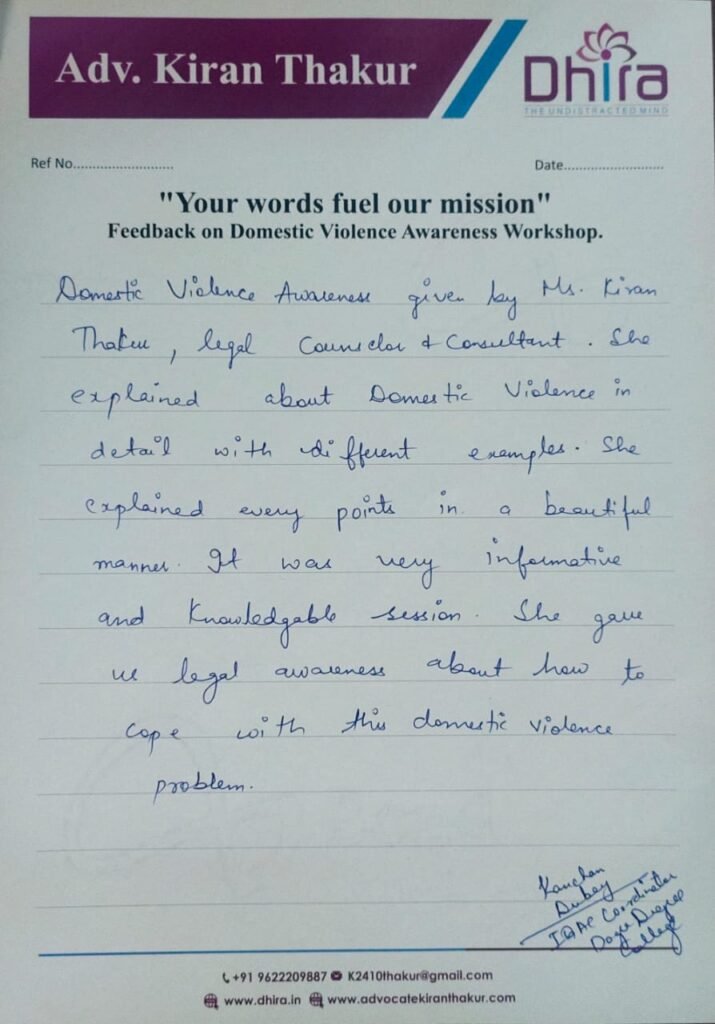 Adv. Kiran Thakur
Dhira
THE UNDISTRACTED MIND
Ref No.........................
Date.........................
"Your words fuel our mission"
Feedback on Domestic Violence Awareness Workshop.
Domestic Violence Awareness given by Ms. Kiran
Thakur, legal Counselor & Consultant. She
explained about Domestic Violence in
detail with different examples. She
explained every points in a beautiful
manner. It was very informative
and Knowledgable session. She gave
us legal awareness about how to
cope with this domestic violence
problem.
Kanchan
Dubey
IQAC Coordinator
Degree
College
+91 9622209887 K2410thakur@gmail.com
www.dhira.in www.advocatekiranthakur.com